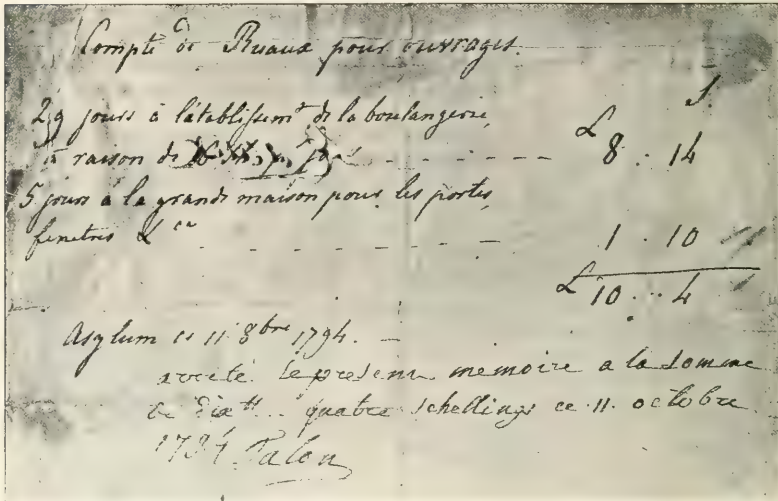 Compte de Ruaux pour ouvrages
£ S.
29 jours à l'établissemt de la boulangerie,
à raison de 8 . 14
5 jours à la grande maison pour les portes,
fenetres &ca 1 . 10
£ 10 .. 4
Asylum ce 11 8bre 1794. —
arreté le present memoire a la somme
de dix tt quatre schellings ce 11. octobre
1794. Talon